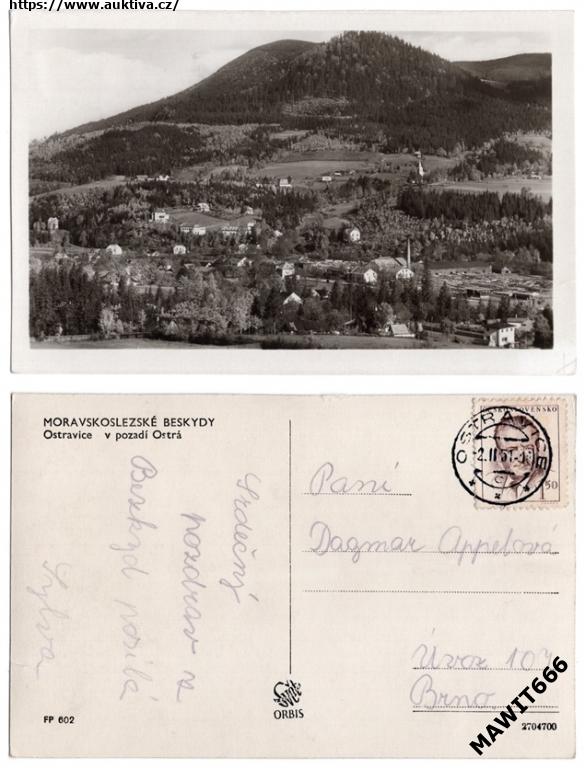 https://www.auktiva.cz/
MORAVSKOSLEZSKÉ BESKYDY
Ostravice v pozadí Ostrá
Srdečný
pozdrav z
Beskyd posílá
Sylva
FP 602
ORBIS
ČESKOSLOVENSKO
OSTRAVICE
1.50
Paní
Dagmar Appelová
Úvoz 107
Brno
2704700
MAWIT666